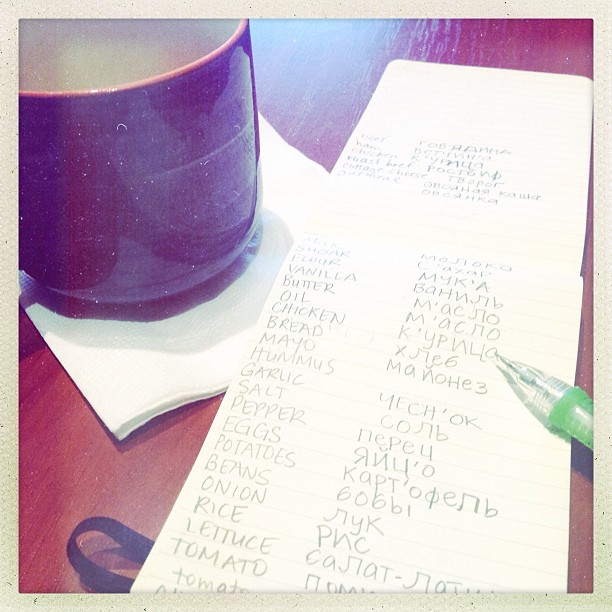 beef говядина
ham ветчина
chicken курица
roast beef ростбиф
cottage cheese творог
oatmeal овсяная каша
овсянка
MILK МОЛОКО
SUGAR С'АХАР
FLOUR МУК'А
VANILLA ВАНИЛЬ
BUTTER М'АСЛО
OIL М'АСЛО
CHICKEN К'УРИЦА
BREAD ХЛЕБ
MAYO МАЙОНЕЗ
HUMMUS
GARLIC ЧЕСН'ОК
SALT СОЛЬ
PEPPER ПЕРЕЦ
EGGS ЯЙЦ'О
POTATOES КАРТ'ОФЕЛЬ
BEANS БОБЫ
ONION ЛУК
RICE РИС
LETTUCE САЛАТ-ЛАТУК
TOMATO
tomato